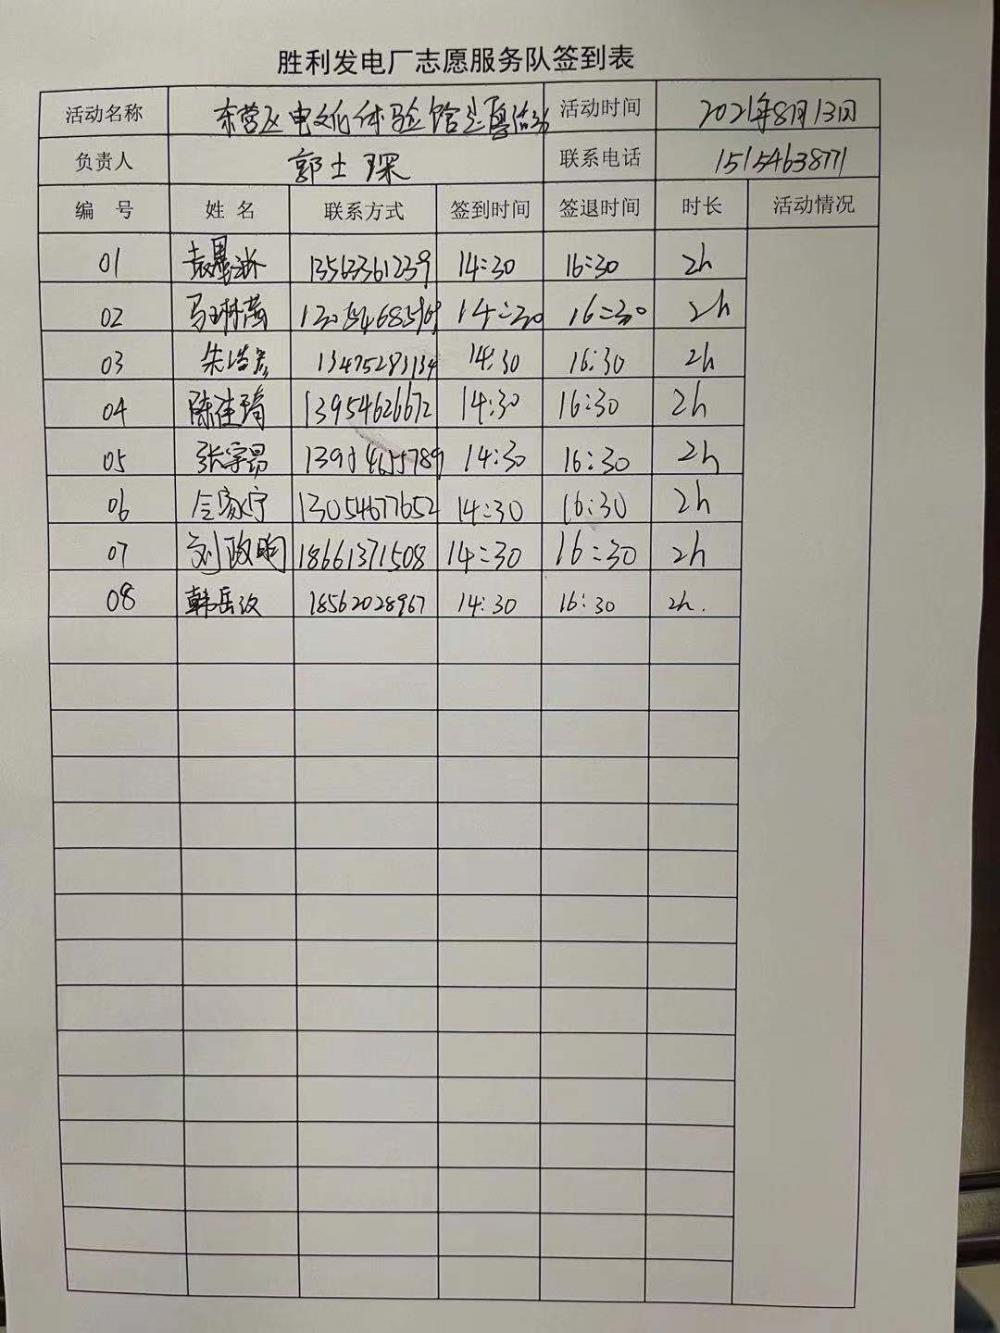 胜利发电厂志愿服务队签到表
活动名称 东营区电文化体验馆志愿活动 活动时间 2021年8月13日
负责人 郭士琛 联系电话 15154638771
编 号 姓 名 联系方式 签到时间 签退时间 时长 活动情况
01 13563361239 14:30 16:30 2h
02 马琳茜 14:30 16:30 2h
03 朱浩 13475283134 14:30 16:30 2h
04 陈佳琦 13954626672 14:30 16:30 2h
05 张宇昂 14:30 16:30 2h
06 13054677652 14:30 16:30 2h
07 刘政昀 18661371508 14:30 16:30 2h
08 韩岳汝 18562028967 14:30 16:30 2h.